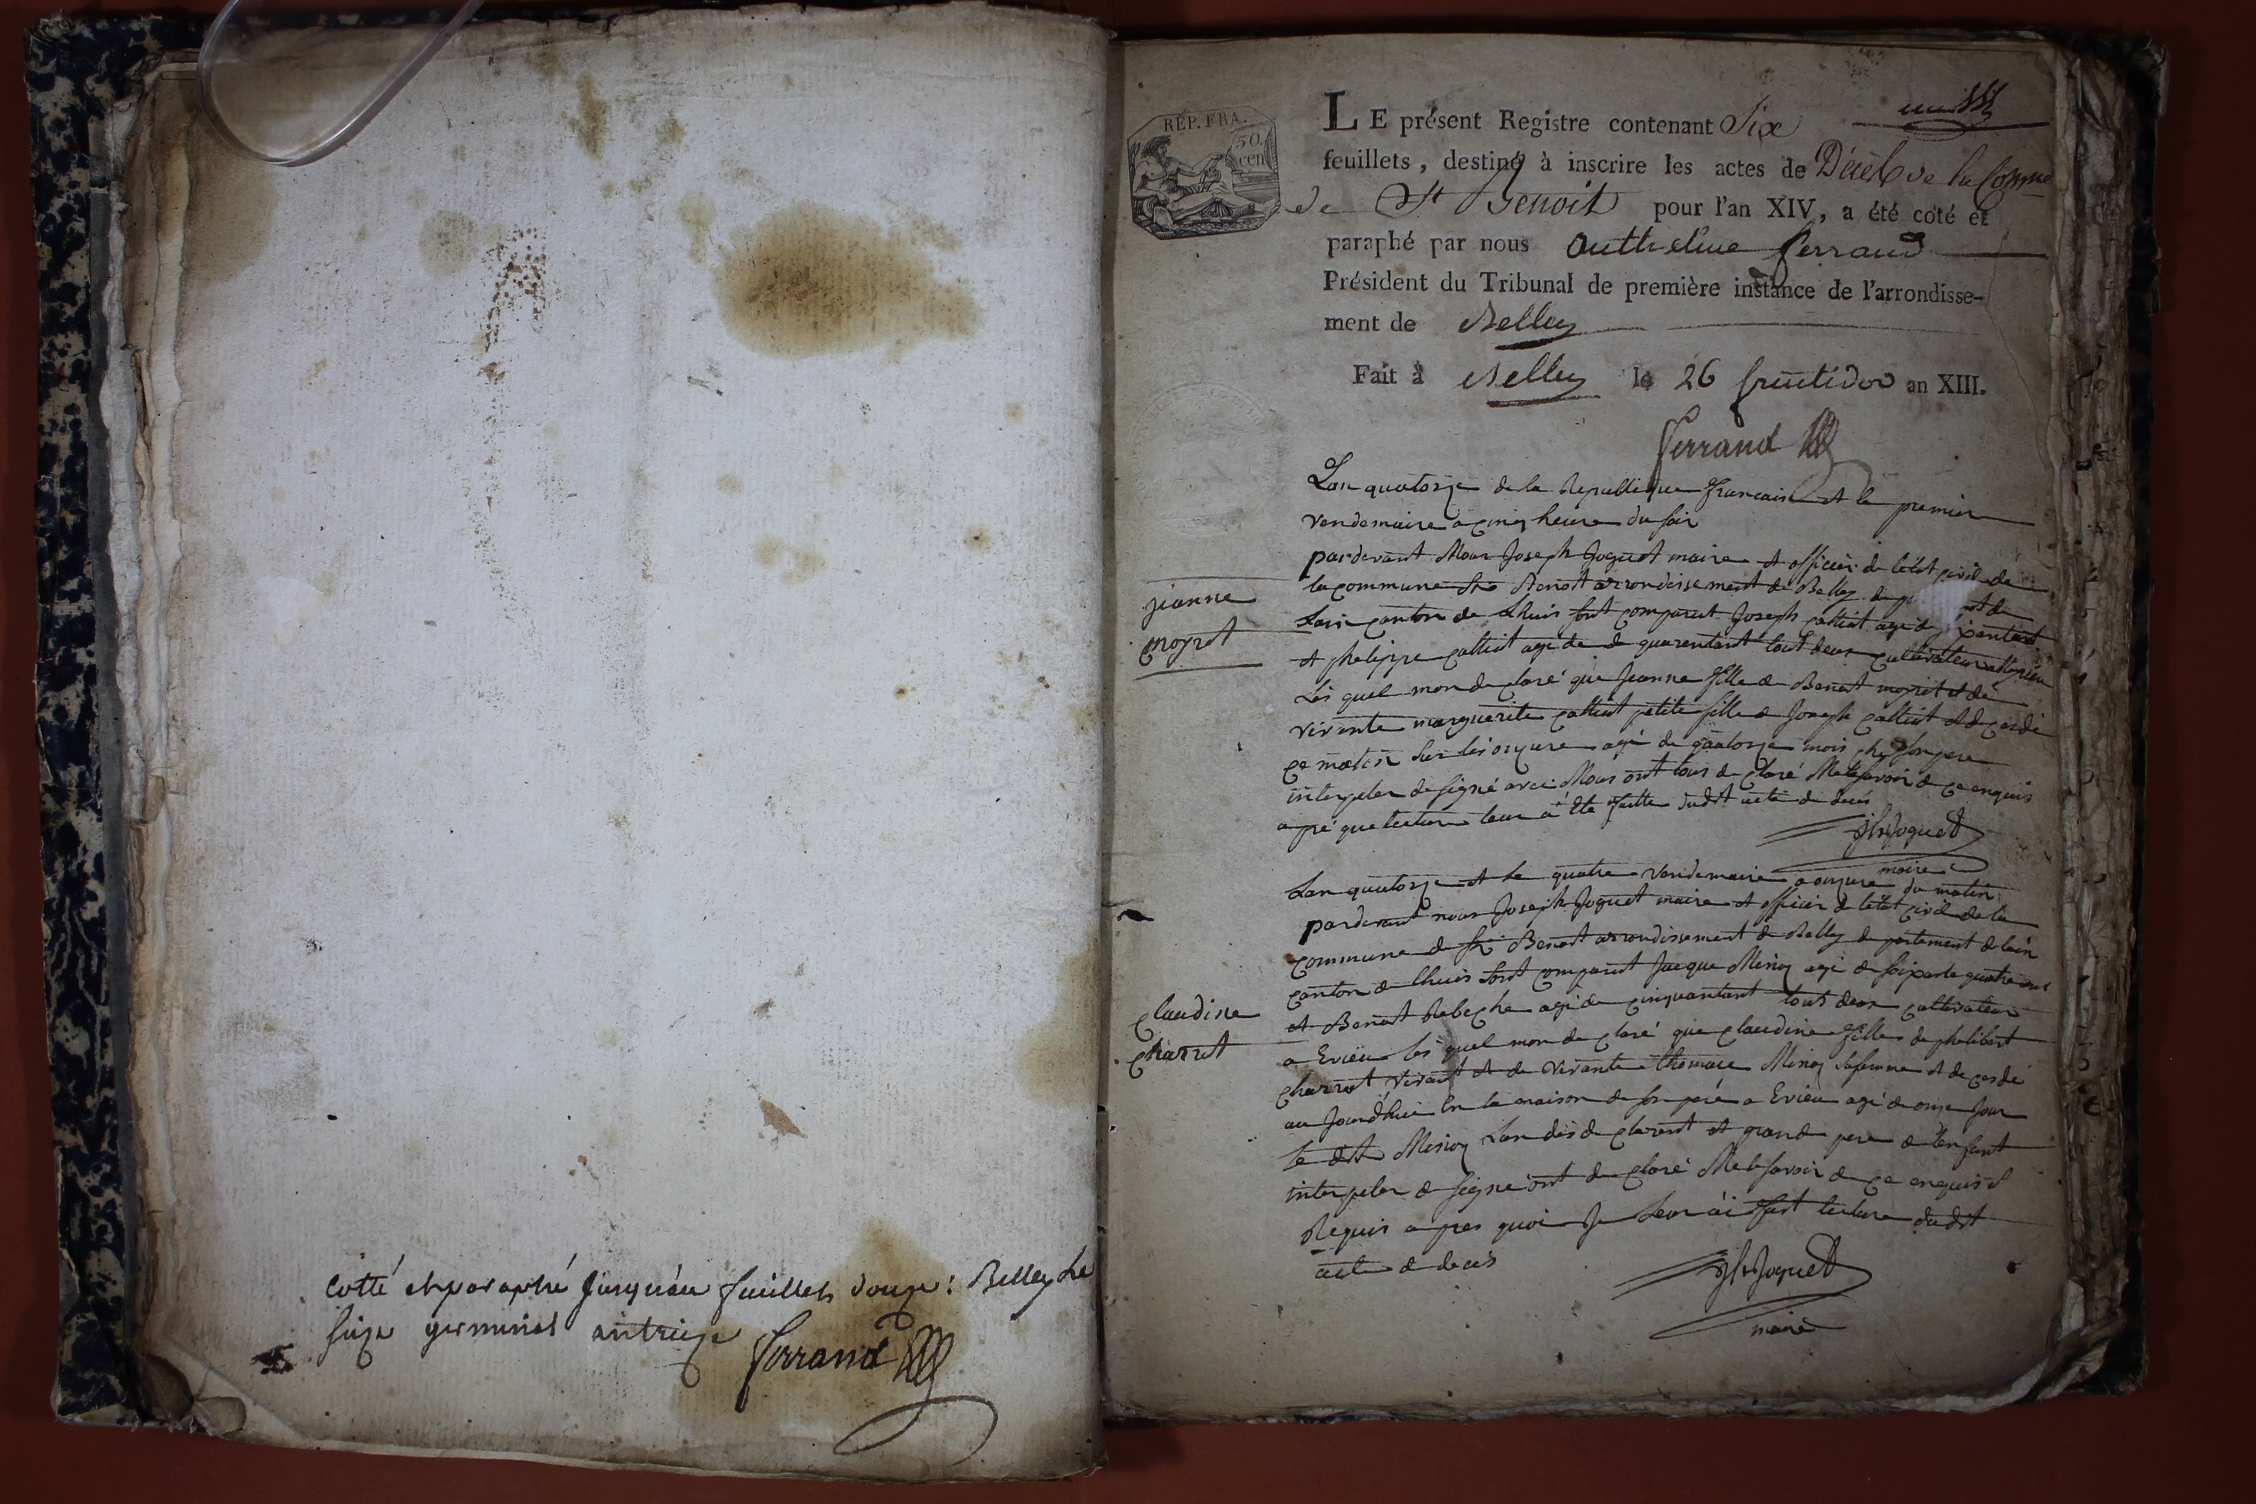 cotté et paraphé jusqu'au feuillet douze : Belley Le
seize germinal an treize
Ferrand
RÉP. FRA.
50.
cen
LE présent Registre contenant Six
feuillets, destiné à inscrire les actes de Décès de la Comme
de St Benoit pour l'an XIV, a été coté et
paraphé par nous Anthelme Ferrand
Président du Tribunal de première instance de l'arrondisse-
ment de Belley
Fait à Belley le 26 fructidor an XIII.
Ferrand
Lan quatorze de la Republique francaise et le premier
vendemaire a cinq heure du soir
pardevant Nous Joseph Joguet maire et officier de létat civil de
la commune St Benoit arrondissement de Belley de
Lain canton de Lhuis sont comparut Joseph cattiet agé de
et phelippe cattiet agé de quarentant tout deux cultivateur
Les quel mon declaré que Jeanne fille de Benoit moyret et de
vivante marguerite cattiet petite fille de Joseph cattiet est decedé
ce matin sur les onzeure agé de quatorze mois chez son pere
interpeler de signé avec Nous ont tous declaré Ne le savoir de ce enquis
a pré que lecture leur a été faitte dudit acte de decés
Jh Joguet
maire
jeanne
moyret
Lan quatorze et le quatre vendemaire a onzeure du matin
pardevant nous Joseph Joguet maire et officier de létat civil de la
commune de St Benoit arrondissement de Belley departement de lain
canton de lhuis sont comparut Jacque Miney agé de soixante quatre ans
et Benoit Rebeche agé de cinquantant tout deux cultivateur
a Evieu les quel mon declaré que claudine fille de phelibert
charret vivant et de vivante thomace Miney safemme et decedé
au jourd'hui En la maison de son peré a Evieu agé de onze jour
le dit Miney Lun des declarant et grand pere de lenfant
interpeler de signé ont declaré Ne le savoir de ce enquis et
Requis apres quoi Je leur ai fait lecture dudit
acte de decés
Jh Joguet
maire
claudine
charret